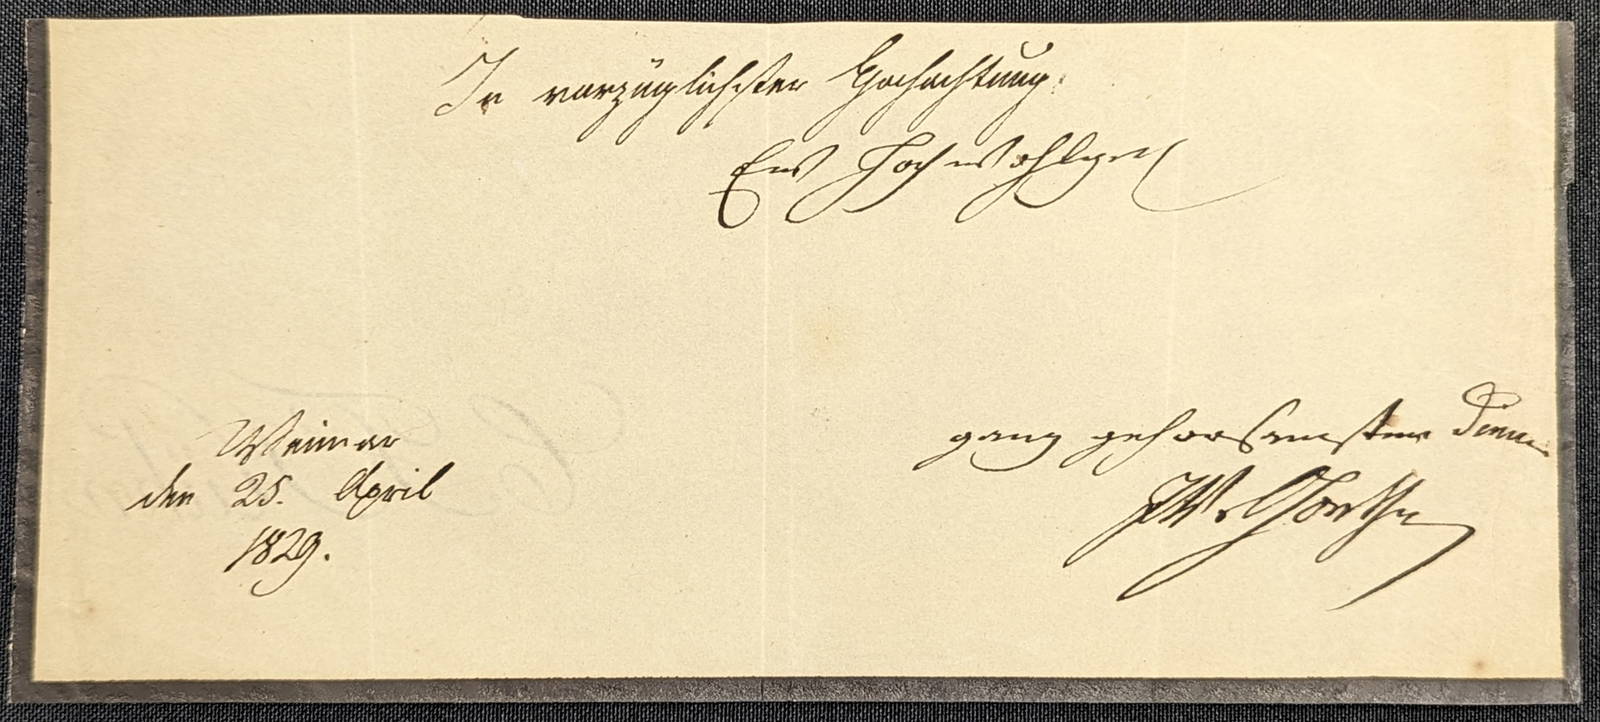 In vorzüglichster Hochachtung
Ew Hochwohlgeb
ganz gehorsamster Diener
JWvGoethe
Weimar
den 25. April
1829.